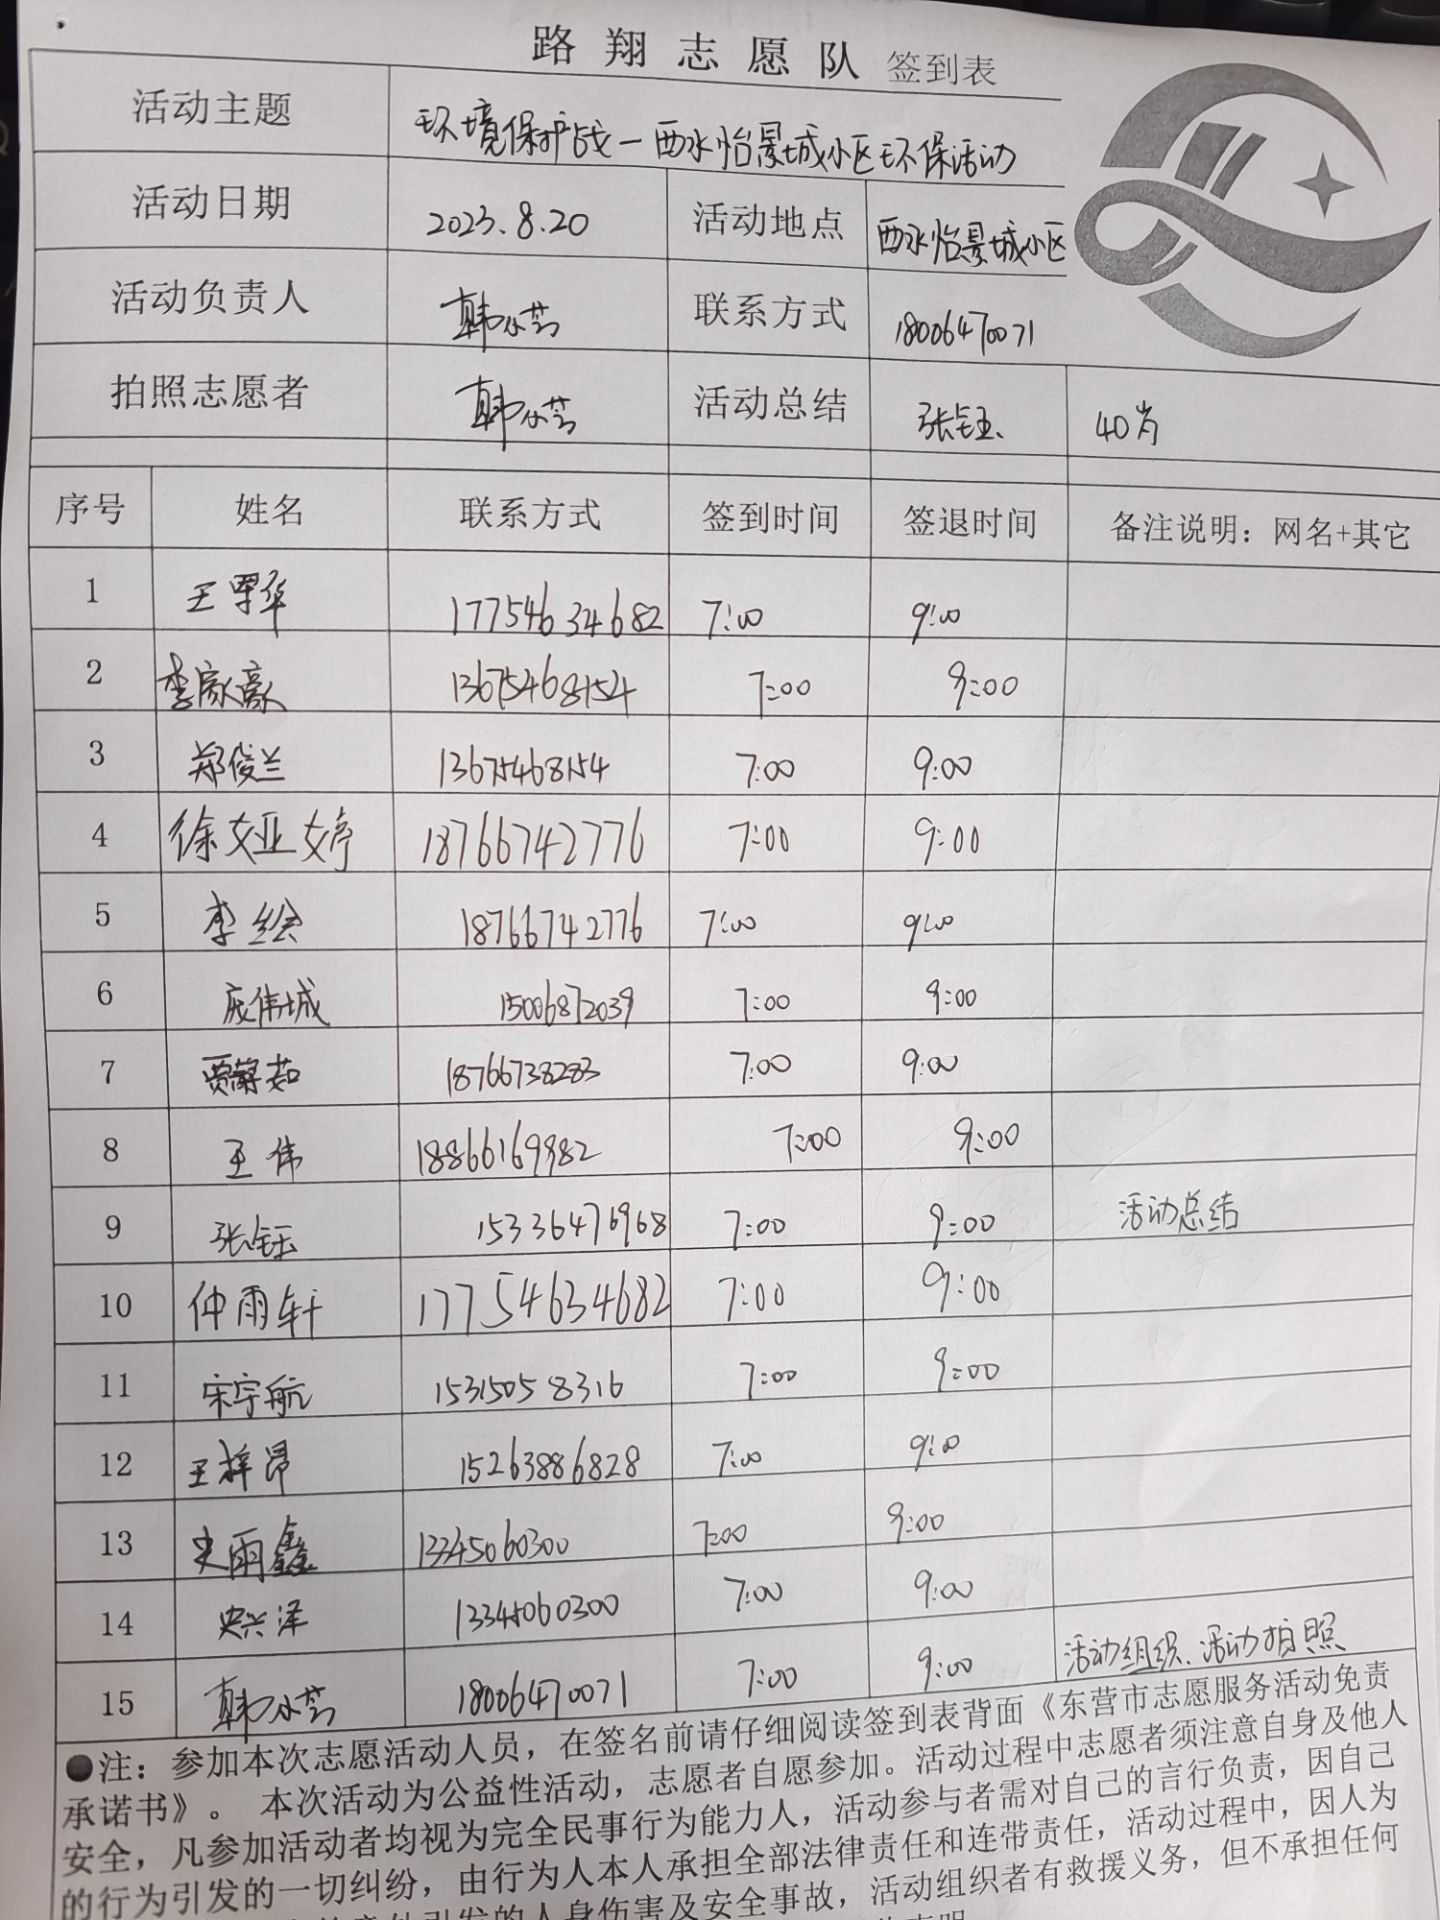 路翔志愿队 签到表
活动主题 环境保护战一西水怡景城小区环保活动
活动日期 2023.8.20 活动地点 西水怡景城小区
活动负责人 联系方式 18006470071
拍照志愿者 活动总结 张钰 40岁
序号 姓名 联系方式 签到时间 签退时间 备注说明：网名+其它
1 17754634682 7:00 9:00
2 李家豪 13675468154 7:00 9:00
3 郑俊兰 13675468154 7:00 9:00
4 徐娅婷 18766742776 7:00 9:00
5 李绘 18766742776 7:00 9:00
6 伟城 15006872039 7:00 9:00
7 贾馨茹 18766738283 7:00 9:00
8 王伟 18866169982 7:00 9:00
9 张钰 15336476968 7:00 9:00 活动总结
10 仲雨轩 17754634682 7:00 9:00
11 宋宇航 15315058316 7:00 9:00
12 王梓昂 15263886828 7:00 9:00
13 史雨鑫 13345060300 7:00 9:00
14 史兴泽 13345060300 7:00 9:00
15 18006470071 7:00 9:00 活动组织、活动拍照
●注：参加本次志愿活动人员，在签名前请仔细阅读签到表背面《东营市志愿服务活动免责
承诺书》。 本次活动为公益性活动，志愿者自愿参加。活动过程中志愿者须注意自身及他人
安全，凡参加活动者均视为完全民事行为能力人，活动参与者需对自己的言行负责，因自己
的行为引发的一切纠纷，由行为人本人承担全部法律责任和连带责任，活动过程中，因人为
意外引发的人身伤害及安全事故，活动组织者有救援义务，但不承担任何